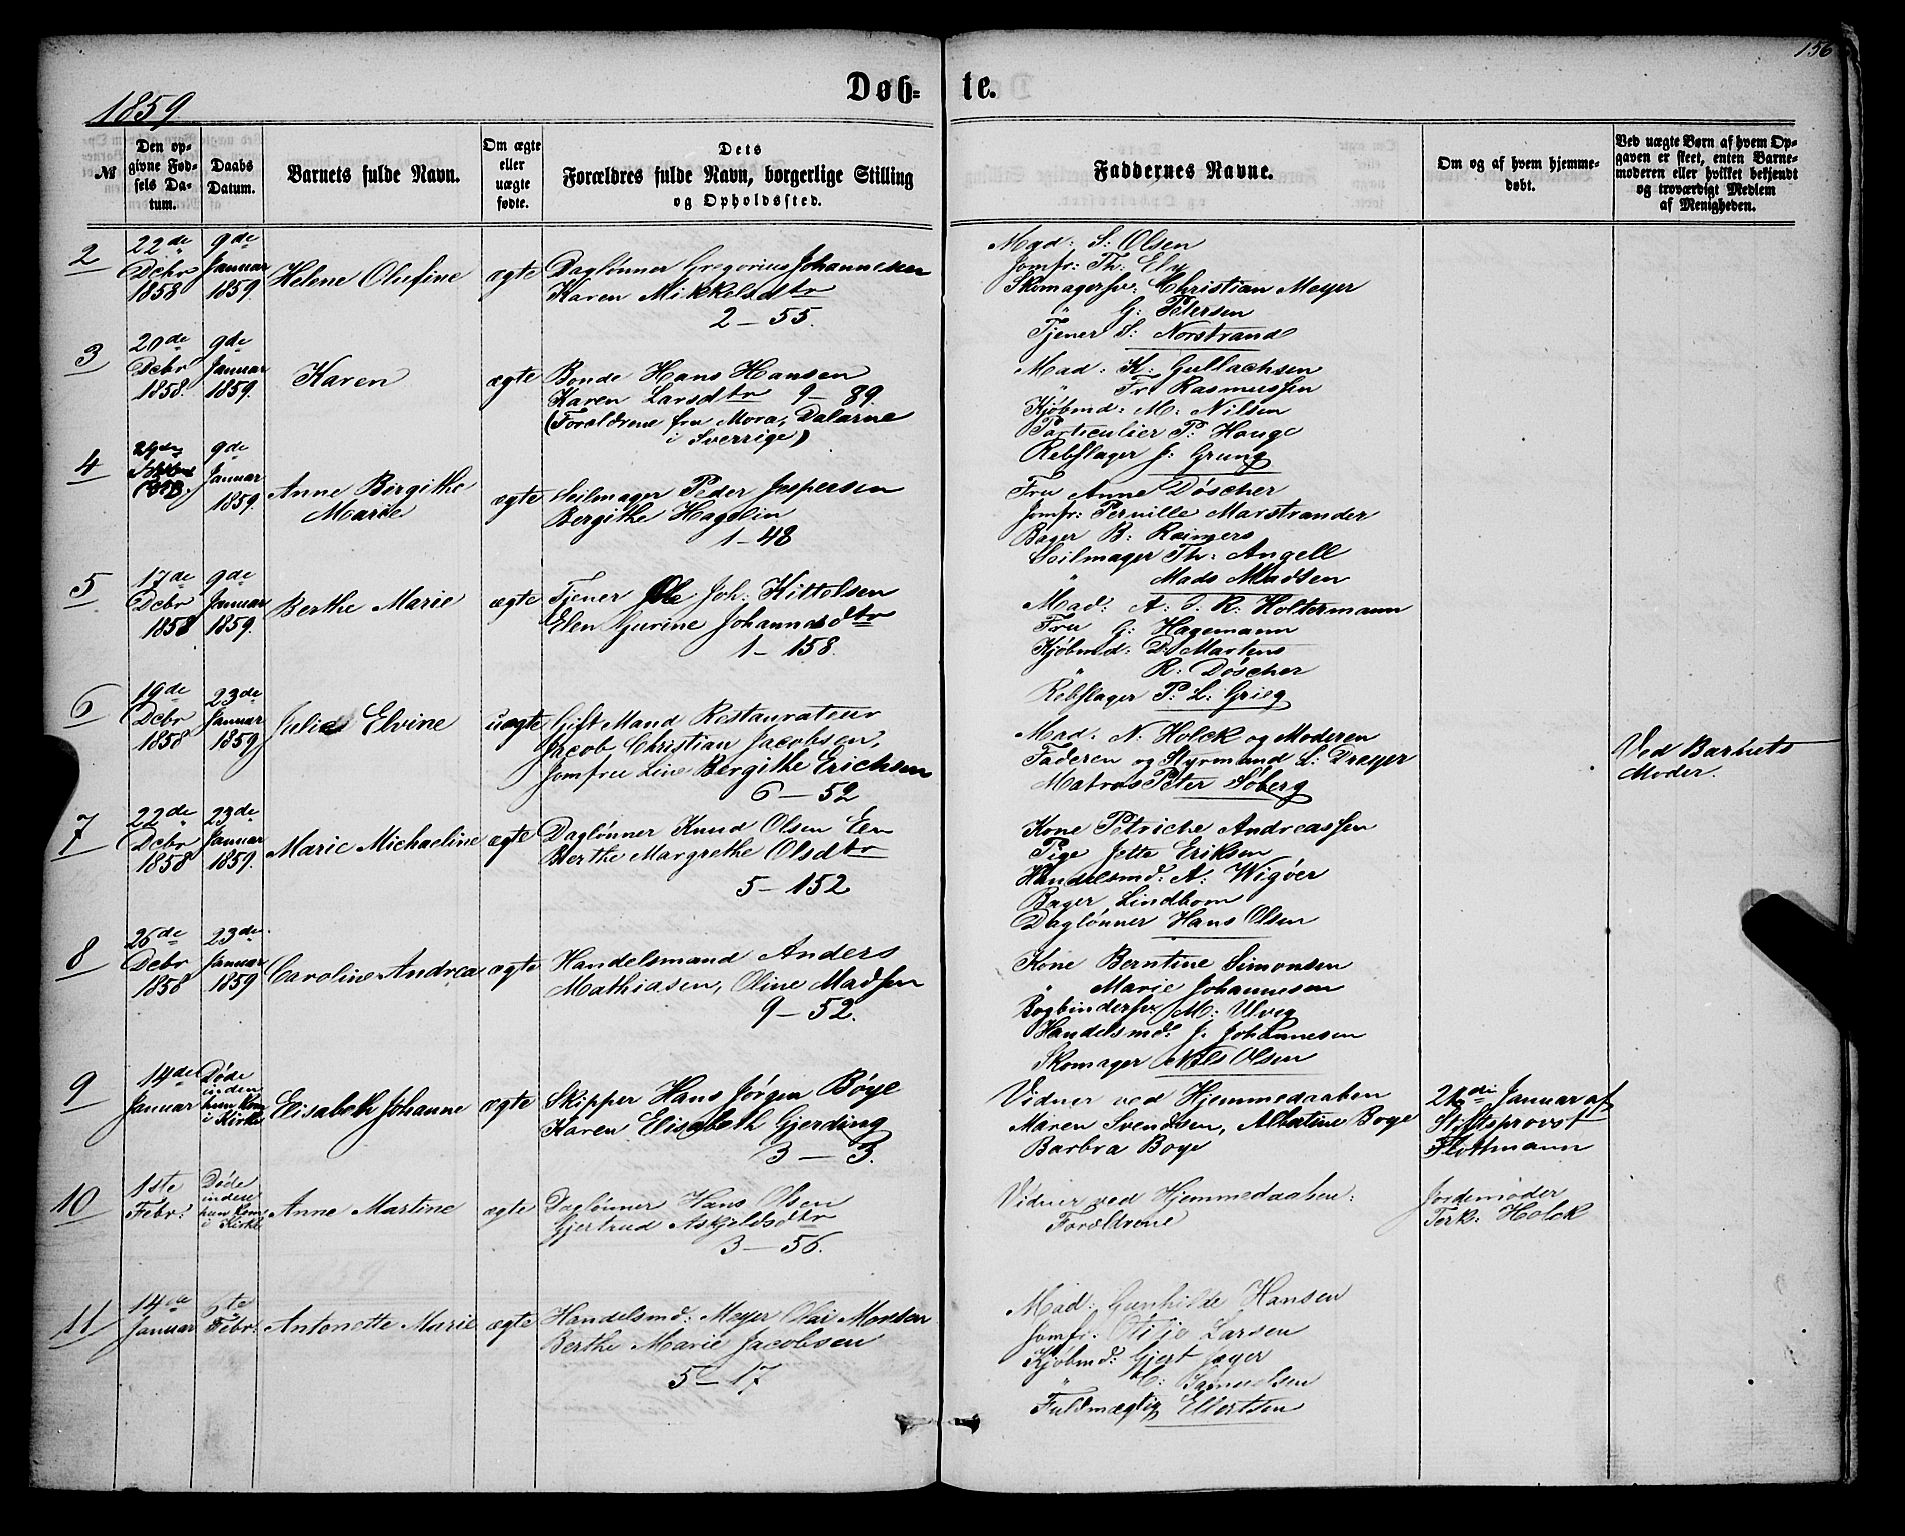 156
1859
Døb-
te.
№
Den op-
givne Fød-
sels Da-
tum.
Daabs
Datum.
Barnets fulde Navn.
Om ægte
eller
uægte
fødte.
Dets
Forældres fulde Navn, borgerlige Stilling
og Opholdssted.
Faddernes Navne.
Om og af hvem hjemme-
døbt.
Ved uægte Børn af hvem Op-
gaven er skeet, enten Barne-
moderen eller hvilket bekjendt
og troværdigt Medlem
af Menigheden.
2
22de
Dcbr
1858
9de
Januar
1859
Helene Olufine
ægte
Daglønner Gregorius Johannesen
Karen Mikkelsdtr
2 - 55.
Mad: S: Olsen
Jomfr: Th: Ely
Skomagersv: Christian Meyer
" G: Petersen
Tjener S: Norstrand
3
20de
Dcbr
1858.
9de
Januar
1859.
Karen
ægte
Bonde Hans Hansen
Karen Larsdtr 9 - 89.
(Forældrene fra Mora, Dalarne
i Sverrige)
Mad: K: Gullachsen
" Fr: Rasmussen
Kjøbmd: M: Nilsen
Particulier P: Hauge
Rebslager J: Grung
4
1858.
9de
Januar
1859.
Anne Birgithe
Marie
ægte
Seilmager Peder Jespersen
Bergithe Hagelin
1 - 48
Fru Anne Døscher
Jomfr: Pernille Marstrander
Bager B: Reimers
Seilmager Th: Angell
" Mads Madsen
5
17de
Dcbr
1858
9de
Januar
1859.
Berthe Marie
ægte
Tjener Ole Joh: Kittelsen
Elen Gurine Johannesdtr
1 - 158.
Mad: A: J: R: Holtermann
Fru G: Hagemann
Kjøbmd: D: Martens
" R: Døscher
Rebslager P: L: Grieg
6
19de
Dcbr
1858
23de
Januar
1859
Julie Elvine
uægte
Gift Mand Restaurateur
Jacob Christian Jacobsen,
Jomfru Line Bergithe Erichsen
6 - 52
Mad: N: Holck og Moderen
Faderen og Styrmand L: Dreyer
Matros Peter Søberg
Ved Barnets
Moder.
7
22de
Dcbr
1858
23de
Januar
1859.
Marie Michaeline
ægte
Daglønner Knud Olsen Een
Berthe Margrethe Olsdtr
5 - 152
Kone Petriche Andreassen
Pige Jette Eriksen
Handelsmd: A: Wigøer
Bager Lindbom
Daglønner Hans Olsen
8
26de
Dcbr
1858
23de
Januar
1859
Caroline Andrea
ægte
Handelsmand Anders
Mathiasen, Oline Madsen
9 - 52.
Kone Berntine Simonsen
" Marie Johannesen
Bogbindersv: M: Ulveg
Handelsmd: J: Johannesen
Skomager Nils Olsen
9
14de
Januar
Døde
inden
hun kom
i Kirke
Elisabeth Johanne
ægte
Skipper Hans Jørgen Bøye
Karen Elisabeth Gjerding
3 - 3.
Vidner ved Hjemmedaaben
Maren Svendsen, Albertine Boge
Barbra Boye
Januar af
Stiftsprovst
Flottmann
10
1ste
Febr:
Døde
inden
hun kom
i Kirke
Anne Martine
ægte
Daglønner Hans Olsen
Gjertrud Askjeldsdtr
3 - 56.
Vidner ved Hjemmedaaben:
Forældrene
Jordemoder
Terk: Holck
11
14de
Januar
6te
Febr:
Antonette Marie
ægte
Handelsmd: Meyer Olai Monsen
Berthe Marie Jacobsen
5 - 17
Mad: Gunhilde Hansen
Jomfr: Otilie Larsen
Kjøbmd: Gjert Jæger
" C: Samuelsen
Fuldmægtig Ellertsen